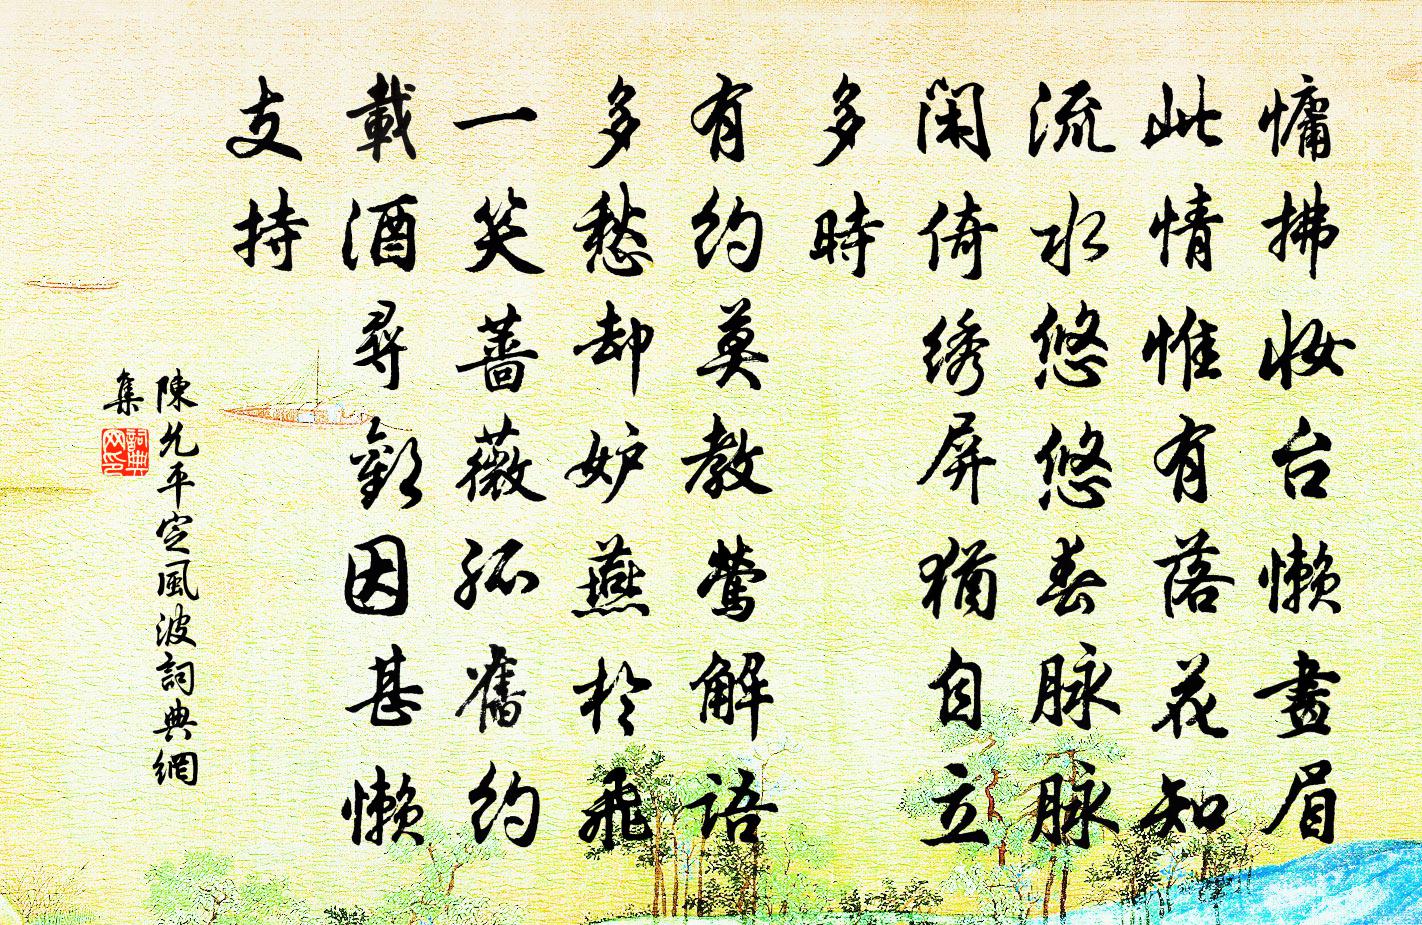 慵拂妆台懒畫眉
此情惟有落花知
流水悠悠春脉脉
闲倚绣屏猶自立
多時
有约莫教莺解语
多愁却妒燕於飛
一笑蔷薇孤舊约
載酒尋歡因甚懒
支持
陳允平定風波詞典網
集
詞典网印